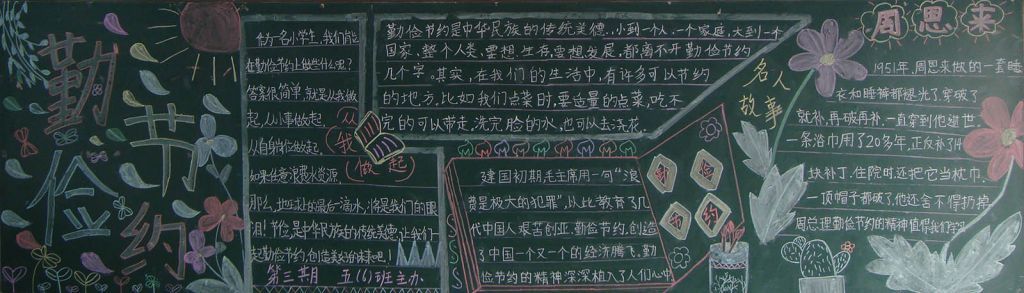 勤俭
节约
作为一名小学生,我们能
在勤俭节约上做些什么呢?
答案很简单,就是从我做
起,从小事做起,
从自身做起
如果任意浪费水资源,
那么,地球上的最后一滴水,将是我们的眼
泪!节俭是中华民族的传统美德,让我们一
起勤俭节约,创造美好的未来吧!
第三期 五(6)班主办
从
我
(做起)
勤俭节约是中华民族的传统美德..小到一个人,一个家庭,大到一个
国家、整个人类,要想生存,要想发展,都离不开勤俭节约
几个字。其实,在我们的生活中,有许多可以节约
的地方,比如我们点菜时,要适量的点菜,吃不
完的可以带走,洗完脸的水,也可以去浇花.
建国初期,毛主席用一句“浪
费是极大的犯罪”,从此教育了几
代中国人艰苦创业,勤俭节约,创造
了中国一个又一个的经济腾飞,勤
俭节约的精神深深植入了人们心中
勤
俭
节
约
名人
故事
周恩来
1951年,周恩来做的一套睡
衣和睡裤都褪光了,穿破了
就补,再破再补,一直穿到他逝世
一条浴巾用了20多年,正反补了
块补丁.住院时还把它当枕巾.
一顶帽子都破了,他还舍不得扔掉
周总理勤俭节约的精神值得我们学习